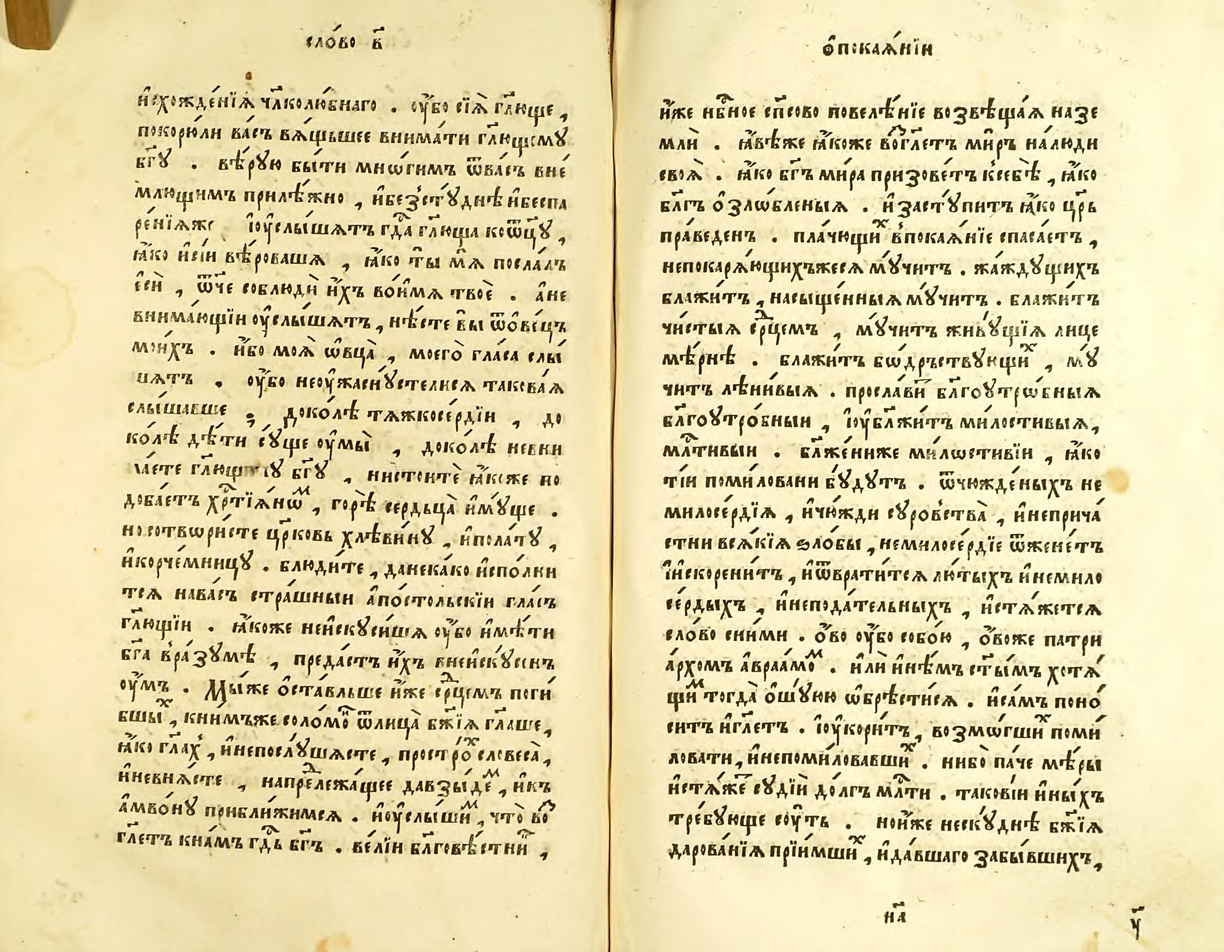 сло́во в҃
и҆схожде́нїѧ чл҃колю́бнаго . оу҆̀бо сїѧ̀ гл҃юще ,
покорю́ли ва́съ вѧ́щьшее внима́ти гл҃ющемꙋ
бг҃ꙋ . вѣ́рꙋю бы́ти мно́гимъ ѿва́съ вне́
млющимъ прилѣ́жно , и҆без̾стꙋ́днѣ и҆беспа
ре́нїѧже і҆оу҆слы́шатъ гдⷭ҇а гл҃юща коѿц҃ꙋ ,
ꙗ҆́ко и҆сїи вѣ́роваша , ꙗ҆́ко ты̀ мѧ̀ посла́лъ
є҆сѝ , ѿ́че соблюдѝ и҆́хъ во и҆́мѧ твоѐ . а҆не
внима́ющїи оу҆слы́шатъ , нѣ́сте вы̀ ѿо҆ве́цъ
мои́хъ . и҆́бо моѧ̀ ѡ҆вцà , моегò гла́са слы́
шатъ . оу҆̀бо неоу҆жаснꙋ́стелисѧ такова́ѧ
слы́шавше ; доко́лѣ тѧжкосе́рдїи , до
ко́лѣ дѣ́ти сꙋ́ще оу҆мы̀ , доко́лѣ невни
ма́ете гл҃ющемꙋ бг҃ꙋ , нистоитѐ ꙗ҆́коже по
доба́етъ хрⷭ҇тїѧ́нѡⷨ , горѣ̀ сердьцà и҆мꙋ́ще .
но сотвѡри́сте цр҃ковь хлѣ́винꙋ , и҆пола́тꙋ ,
и҆корче́мницꙋ . блюди́те , данека́ко и҆спо́лни
тсѧ нава́съ стра́шныи а҆по́стольскїи гла́съ
гл҃ющїи . ꙗ҆́коже неи҆скꙋси́шѧ оу҆̀бо и҆мѣ́ти
бг҃а вра́зꙋмѣ , преда́стъ и҆́хъ внеи҆скꙋ́сенъ
оу҆́мъ . Мы́же о҆ста́вльше и҆́же срⷣцемъ поги́
бшыⷯ , кни́мъже соломо́ⷩ ѿлицà бж҃їѧ гл҃аше ,
ꙗ҆́ко гл҃ахъ , и҆непослꙋ́шасте , простро́ⷯ словеса̀ ,
и҆невнѧ́сте , напреⷣлежа́щее давзы́деⷨ , и҆къ
а҆мво́нꙋ прибли́жимсѧ . и҆оу҆слы́шиⷨ , что̀ воз
гл҃етъ кна́мъ гдⷭ҇ь бг҃ъ . ве́лїи бл҃гове́стниⷦ ,
ѻ҆покаѧ́нїи
и҆́же нбⷭ҇ное сп҃сово повелѣ́нїе возвѣща́ѧ назе
млѝ . ꙗ҆вѣ́же ꙗ҆́коже возгл҃етъ ми́ръ налю́ди
своѧ̀ . ꙗ҆́ко бг҃ъ ми́ра призове́тъ ксебѣ̀ , ꙗ҆́ко
бл҃гъ о҆зло́бленыѧ . и҆застꙋ́питъ ꙗ҆́ко цр҃ь
пра́веденъ . пла́чющиⷯ впокаѧ́нїе спаса́етъ ,
непокарѧ́ющихъжесѧ мꙋ́читъ . жа́ждꙋщихъ
блажи́тъ , насыще́нныѧ мꙋ́читъ . блажи́тъ
чи́стыѧ срⷣцемъ , мꙋ́читъ живꙋ́щїѧ лице
мѣ́рнѣ . блажи́тъ бѡ́дръствꙋющиⷯ , мꙋ́
читъ лѣни́выѧ . просла́витъ бл҃гоꙋтрѡ́бныѧ
бл҃гоꙋтро́бныи , і҆оу҆блажи́тъ ми́лостивыѧ ,
млⷭ҇тивыи . бл҃же́ниже ми́лостивїи , ꙗ҆́ко
ті́и поми́ловани бꙋ́дꙋтъ . ѿчюжде́ныхъ не
милосе́рдїѧ , и҆чю́жди сꙋро́вства , и҆неприча́
стни всѧ́кїѧ ѕло́бы , немилосе́рдїе ѿжене́тъ
і҆и҆скорени́тъ , и҆ѿврати́тсѧ лю́тыхъ и҆немило
се́рдыхъ , и҆неподáтельныхъ , и҆стѧ́жетсѧ
сло́во сни́ми . о҆́во оу҆̀бо собо́ю , о҆́воже патри
а́рхомъ а҆враа́моⷨ . и҆лѝ и҆нѣ́мъ ст҃ы́мъ хотѧ́
щиⷨ тогда̀ о҆шꙋ́юю ѡ҆брѣ́стисѧ . и҆са́мъ поно́
ситъ и҆гл҃етъ . і҆оу҆кори́тъ , возмо́гшиⷯ поми́
ловати , и҆непоми́ловавшиⷯ . ни́бо па́че мѣ́ры
и҆стѧ́же сꙋді́й до́лгъ млⷭ҇ти . такові́и и҆ны́хъ
тре́бꙋюще сꙋ́ть . нои҆́же нескꙋ́днѣ бж҃їѧ
дарова́нїѧ прїи́мшиⷯ , и҆да́вшаго забы́вшихъ ,
н҃а